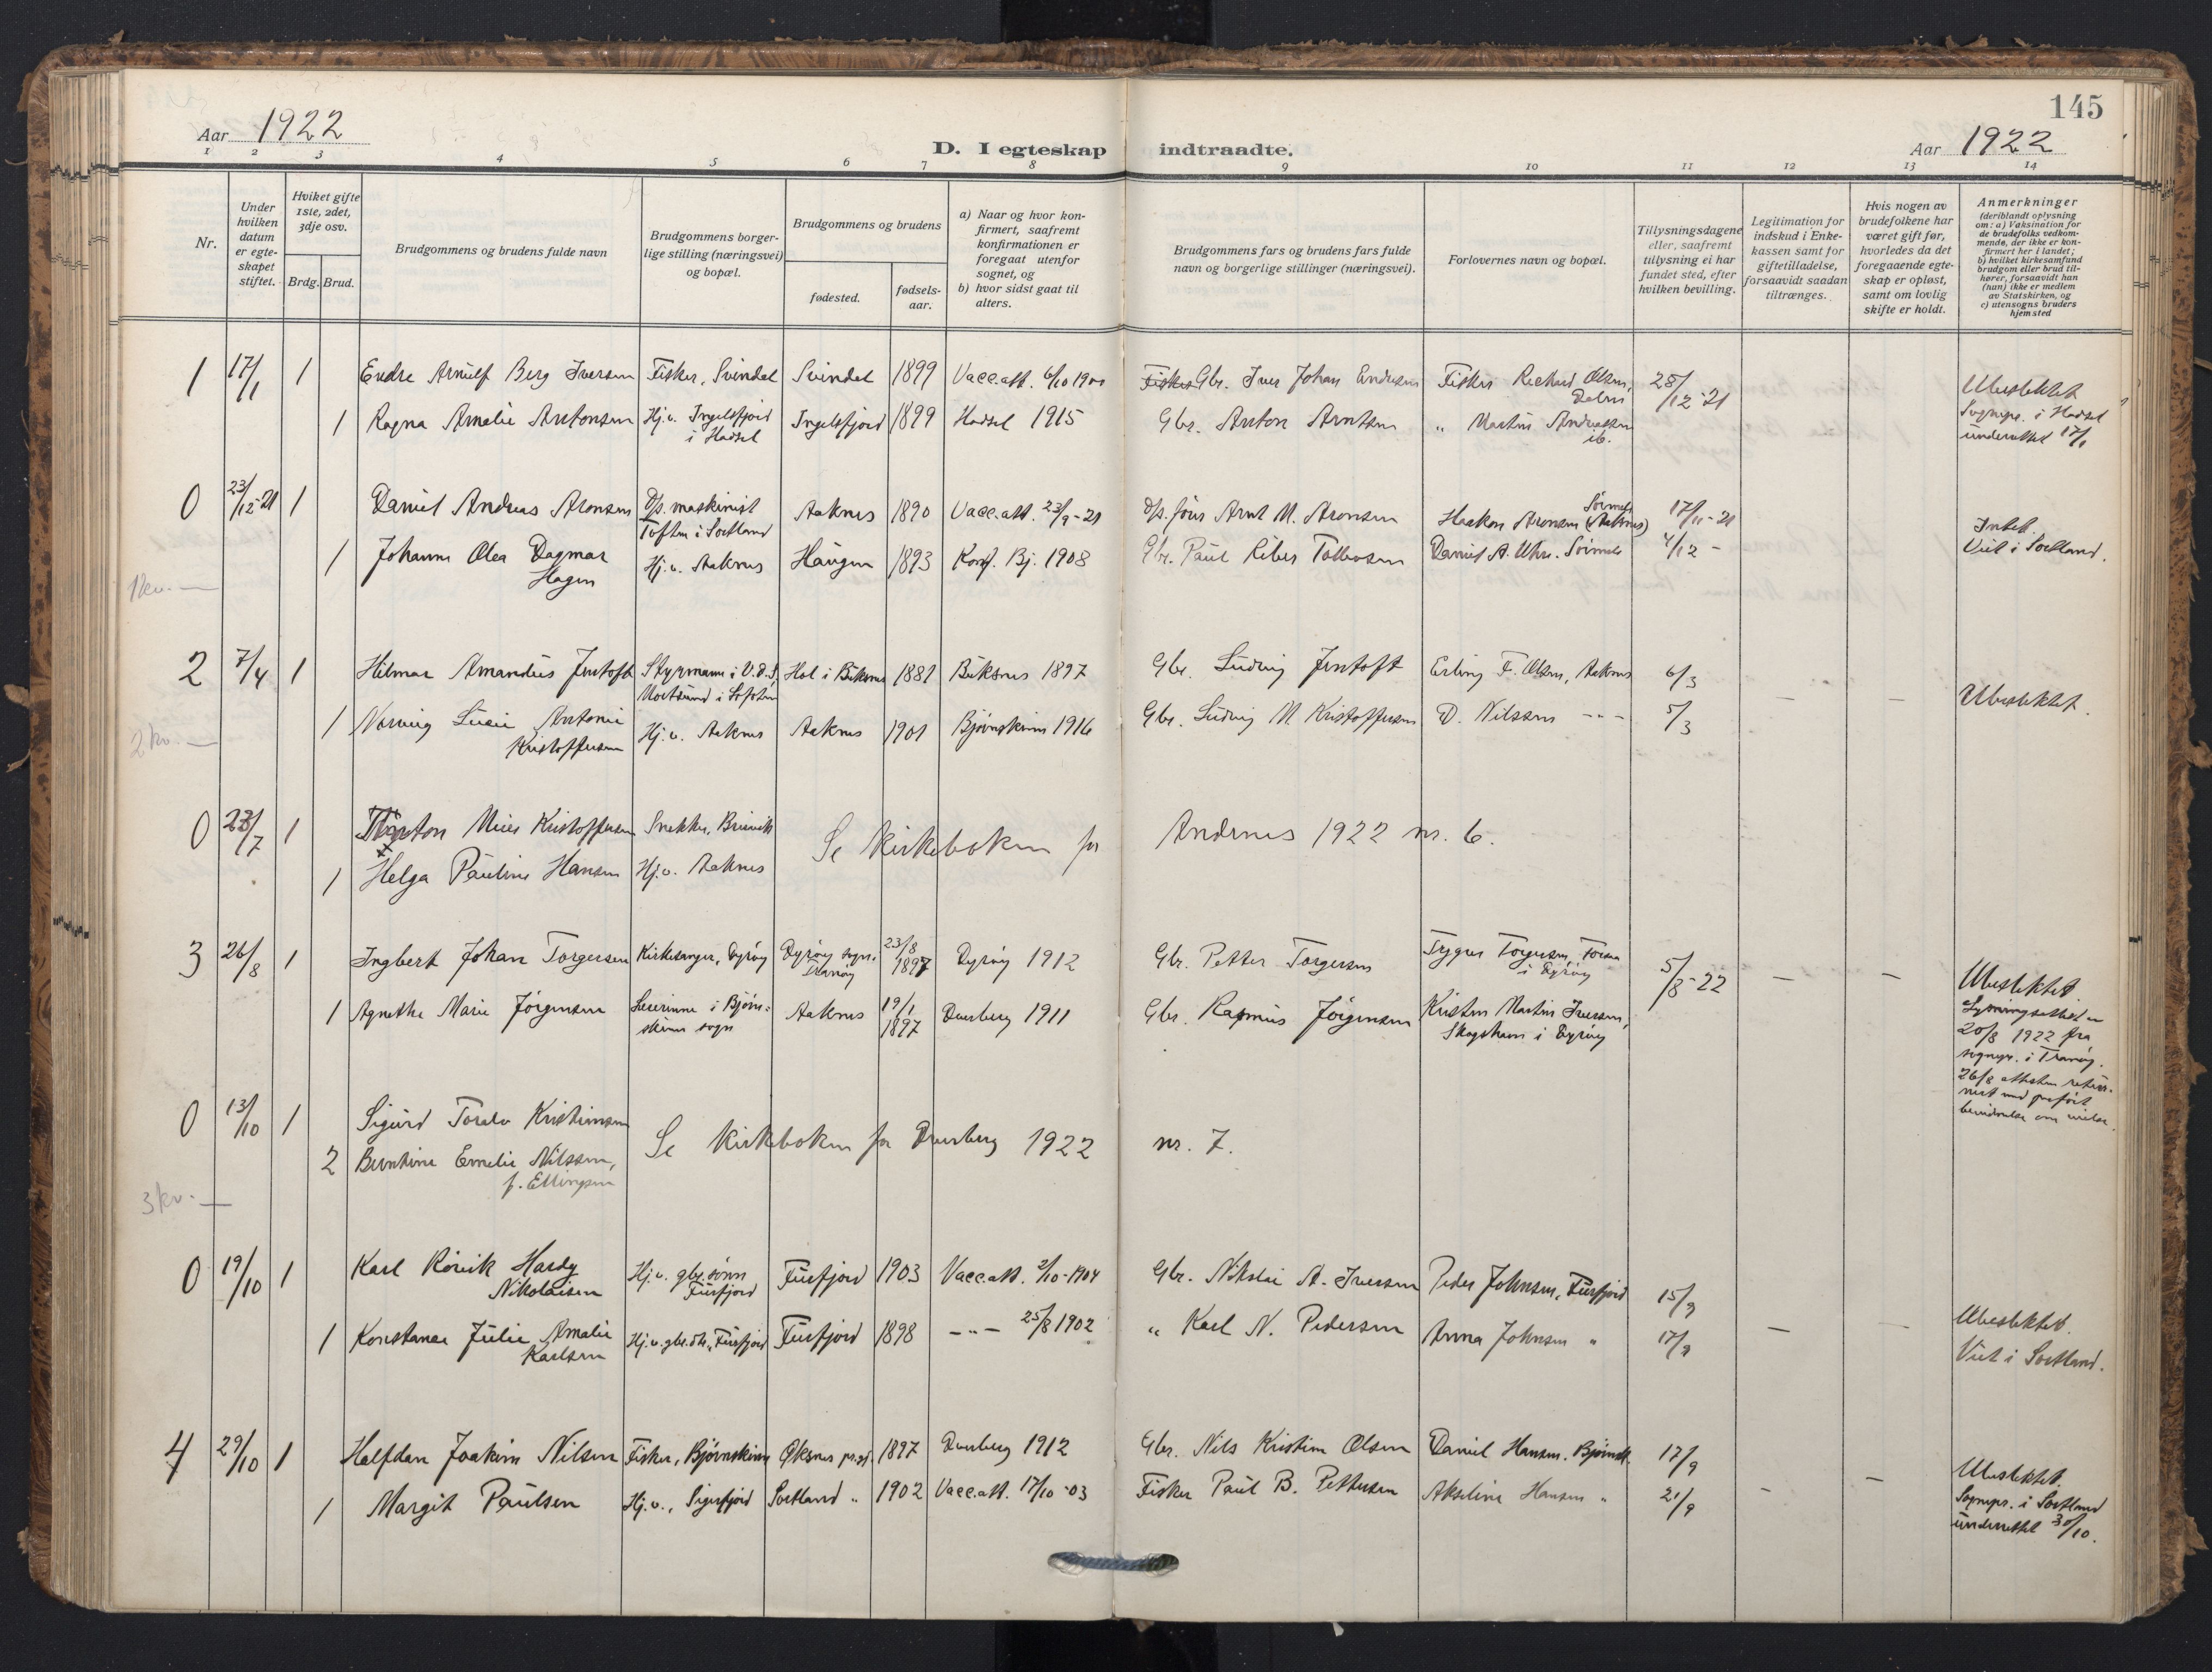 145
Aar 1922
D. I egteskap indtraadte.
Aar 1922
1 2 3 4 5 6 7 8 9 10 11 12 13 14
Nr.
Under hvilken datum er egteskapet stiftet.
Hviket gifte 1ste, 2det, 3dje osv.
Brdg. Brud.
Brudgommens og brudens fulde navn
Brudgommens borgerlige stilling (næringsvei) og bopæl.
Brudgommens og brudens
fødested.
fødselsaar.
a) Naar og hvor konfirmert, saafremt konfirmationen er foregaat utenfor sognet, og
b) hvor sidst gaat til alters.
Brudgommens fars og brudens fars fulde navn og borgerlige stillinger (næringsvei).
Forlovernes navn og bopæl.
Tillysningsdagene eller, saafremt tillysning ei har fundet sted, efter hvilken bevilling.
Legitimation for indskud i Enkekassen samt for giftetilladelse, forsaavidt saadan tiltrænges.
Hvis nogen av brudefolkene har været gift før, hvorledes da det foregaaende egteskap er opløst, samt om lovlig skifte er holdt.
Anmerkninger
(deriblandt oplysning om: a) Vaksination for de brudefolks vedkommende, der ikke er konfirmert her i landet;
b) hvilket kirkesamfund brudgom eller brud tilhører, forsaavidt han (hun) ikke er medlem av Statskirken, og
c) utensogns bruders hjemsted
1 17/1 1 Endre Arnulf Berg Iversen Fisker, Svindal Svindal 1899 Vacc.att. 6/10 1900 Fisker Gbr. Iver Johan Endresen Fisker Richard Olsen, 28/12-21 Ubeslektet
1 Ragna Amalie Antonsen Hj.v. Ingelsfjord i Hadsel Ingelsfjord 1899 Hadsel 1915 Gbr. Anton Arntsen " Martin Andreassen ib. Sognepr. i Hadsel underrettet 17/1
0 23/12-21 1 Daniel Andreas Aronsen D/s. maskinist Toften i Sortland Aaknes 1890 Vacc.att. 23/9-21 D/s. förer Arnt M. Aronsen Haakon Aronsen (Aaknes) 17/11-21
1 Johanne Olea Dagmar Hagen Hj.v. Aaknes Haugen 1893 Konf. Bj. 1908 Gbr. Paul Liber Tobiasen Daniel A. 4/12 - Viet i Sortland.
1 kv. —
2 7/4 1 Hilmar Amandus Jentoft Styrmann i V.D.S. Mortsund i Lofoten Hol i Buksnes 1881 Buksnes 1897 Gbr. Ludvig Jentoft Erling F. Olsen, Aaknes 6/3 — — Ubeslektet.
1 Lucie Antonie Kristoffersen Hj.v. Aaknes Aaknes 1901 Bjørnskinn 1916 Gbr. Ludvig M Kristoffersen D. Nilssen -"- 5/3
2 kv. —
0 23/7 1 Meier Kristoffersen Snekker, Se kirkeboken for Andenes 1922 nr. 6.
1 Helga Pauline Hansen Hj.v. Aaknes
3 26/8 1 Ingbert Johan Torgersen Kirkesanger, Dyröy Dyröy sogn i Tranöy 23/8 1897 Dyröy 1912 Gbr. Petter Torgersen Trygve Torgersen, i Dyröy 5/8-22 — — Ubeslektet
1 Agnethe Marie Jörgensen Lærerinne i Bjørnskinn sogn Aaknes 19/1 1897 Dverberg 1911 Gbr. Rasmus Jörgensen Kristen Martin Iversen, Skogshavn i Dyröy Lysningsattest av 20/8 1922 fra sognepr. i Tranöy. 26/8 attesten returnert med paaført bevidnelse om vielse.
0 13/10 1 Sigurd Toralv Kristiansen Se kirkeboken for Dverberg 1922 nr. 7.
2 Berntine Emelie Nilssen, f. Ellingsen
3 kv. —
0 19/10 1 Karl Rörvik Hardy Nikolaisen Hj.v. gbr.sönn Fusfjord Fusfjord 1903 Vacc.att. 2/10-1904 Gbr. Nikolai A. Iversen Peder Johnsen, Fusfjord 15/9
1 Konstance Julie Amalie Karlsen Hj.v. gbr.dtr., Fusfjord Fusfjord 1898 -"- 25/8 1902 " Karl N. Pedersen Anna Johnsen " 17/9 — — Ubeslektet. Viet i Sortland.
4 29/10 1 Halfdan Joakim Nilsen Fisker, Bjørnskinn Øksnes pr.gj. 1897 Dverberg 1912 Gbr. Nils Kristian Olsen Daniel Hansen, 17/9 — Ubeslektet.
1 Margit Paulsen Hj.v., Sigerfjord Sortland " 1902 Vacc.att. 17/10-03 Fisker Paul B. Pettersen Akseline Hansen " 21/9 - Sognepr. i Sortland underrettet 30/10.